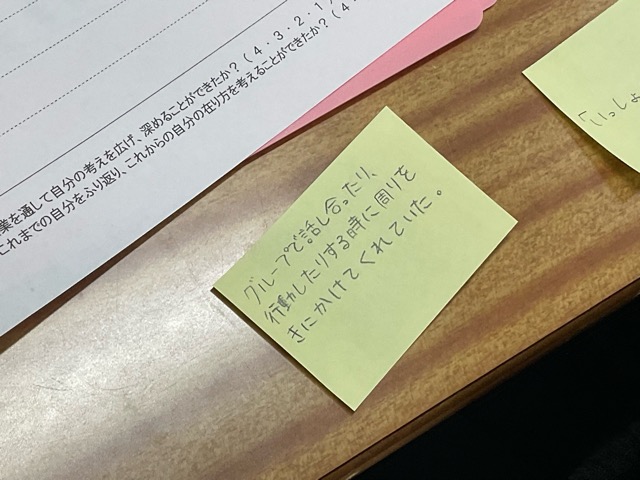 業を通して自分の考えを広げ、深めることができたか？（４．３．２．１）
これまでの自分をふり返り、これからの自分の在り方を考えることができたか？（４．
グループで話し合ったり、
行動したりする時に周りを
きにかけてくれていた。
「いっしょ